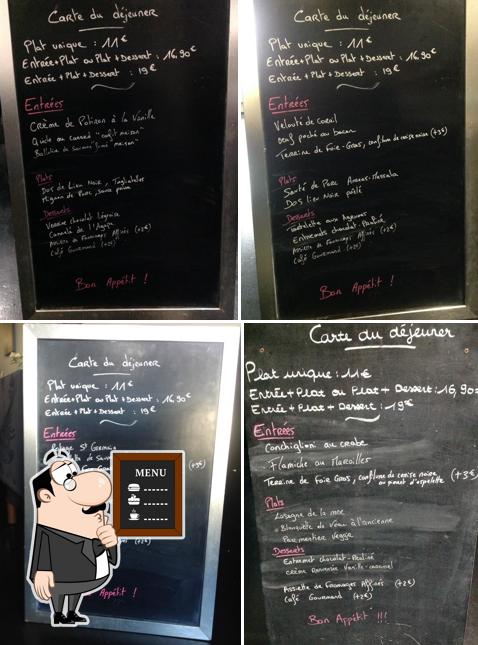 Carte du déjeuner
Plat unique : 11€
Entrée+Plat ou Plat+Dessert : 16,90€
Entrée+Plat+Dessert : 19€
Entrées
Crème de Potiron à la Vanille
maison"
Plats
Dos de Lieu Noir, Tagliatelles
Mignon de Porc, sauce poivre
Desserts
chocolat Liégeois
Assiette de Fromages Affinés (+2€)
Café Gourmand (+2€)
Bon Appétit !
Carte du déjeuner
Plat unique : 11€
Entrée+Plat ou Plat+Dessert : 16,90€
Entrée+Plat+Dessert : 19€
Entrées
Velouté de Corail
Oeuf poché au bacon
Terrine de Foie-Gras, confiture de cerise noire (+3€)
Plats
Sauté de Porc Ananas-Massala
Dos Lieu Noir poêlé
Desserts
Tartelette aux Agrumes
Entremets chocolat-Praliné
Assiette de Fromages Affinés (+2€)
Café Gourmand (+2€)
Bon Appétit !
Carte du déjeuner
Plat unique : 11€
Entrée+Plat ou Plat+Dessert : 16,90€
Entrée+Plat+Dessert : 19€
Entrées
St Germain
(+3€)
MENU
(+2€)
Appétit !
Carte du déjeuner
Plat unique : 11€
Entrée+Plat ou Plat+Dessert : 16,90
Entrée+Plat+Dessert : 19€
Entrées
Conchiglioni au crabe
- Flamiche au Maroilles
Terrine de Foie Gras, confiture de cerise noire (+3€)
au piment d'espelette
Plats
Lasagne de la mer
- Blanquette de Veau à l'ancienne
Parmentier Veggie
Desserts
Entremet chocolat-Praliné
crème renversée Vanille-caramel
Assiette de Fromages Affinés (+2€)
Café Gourmand (+2€)
Bon Appétit !!!